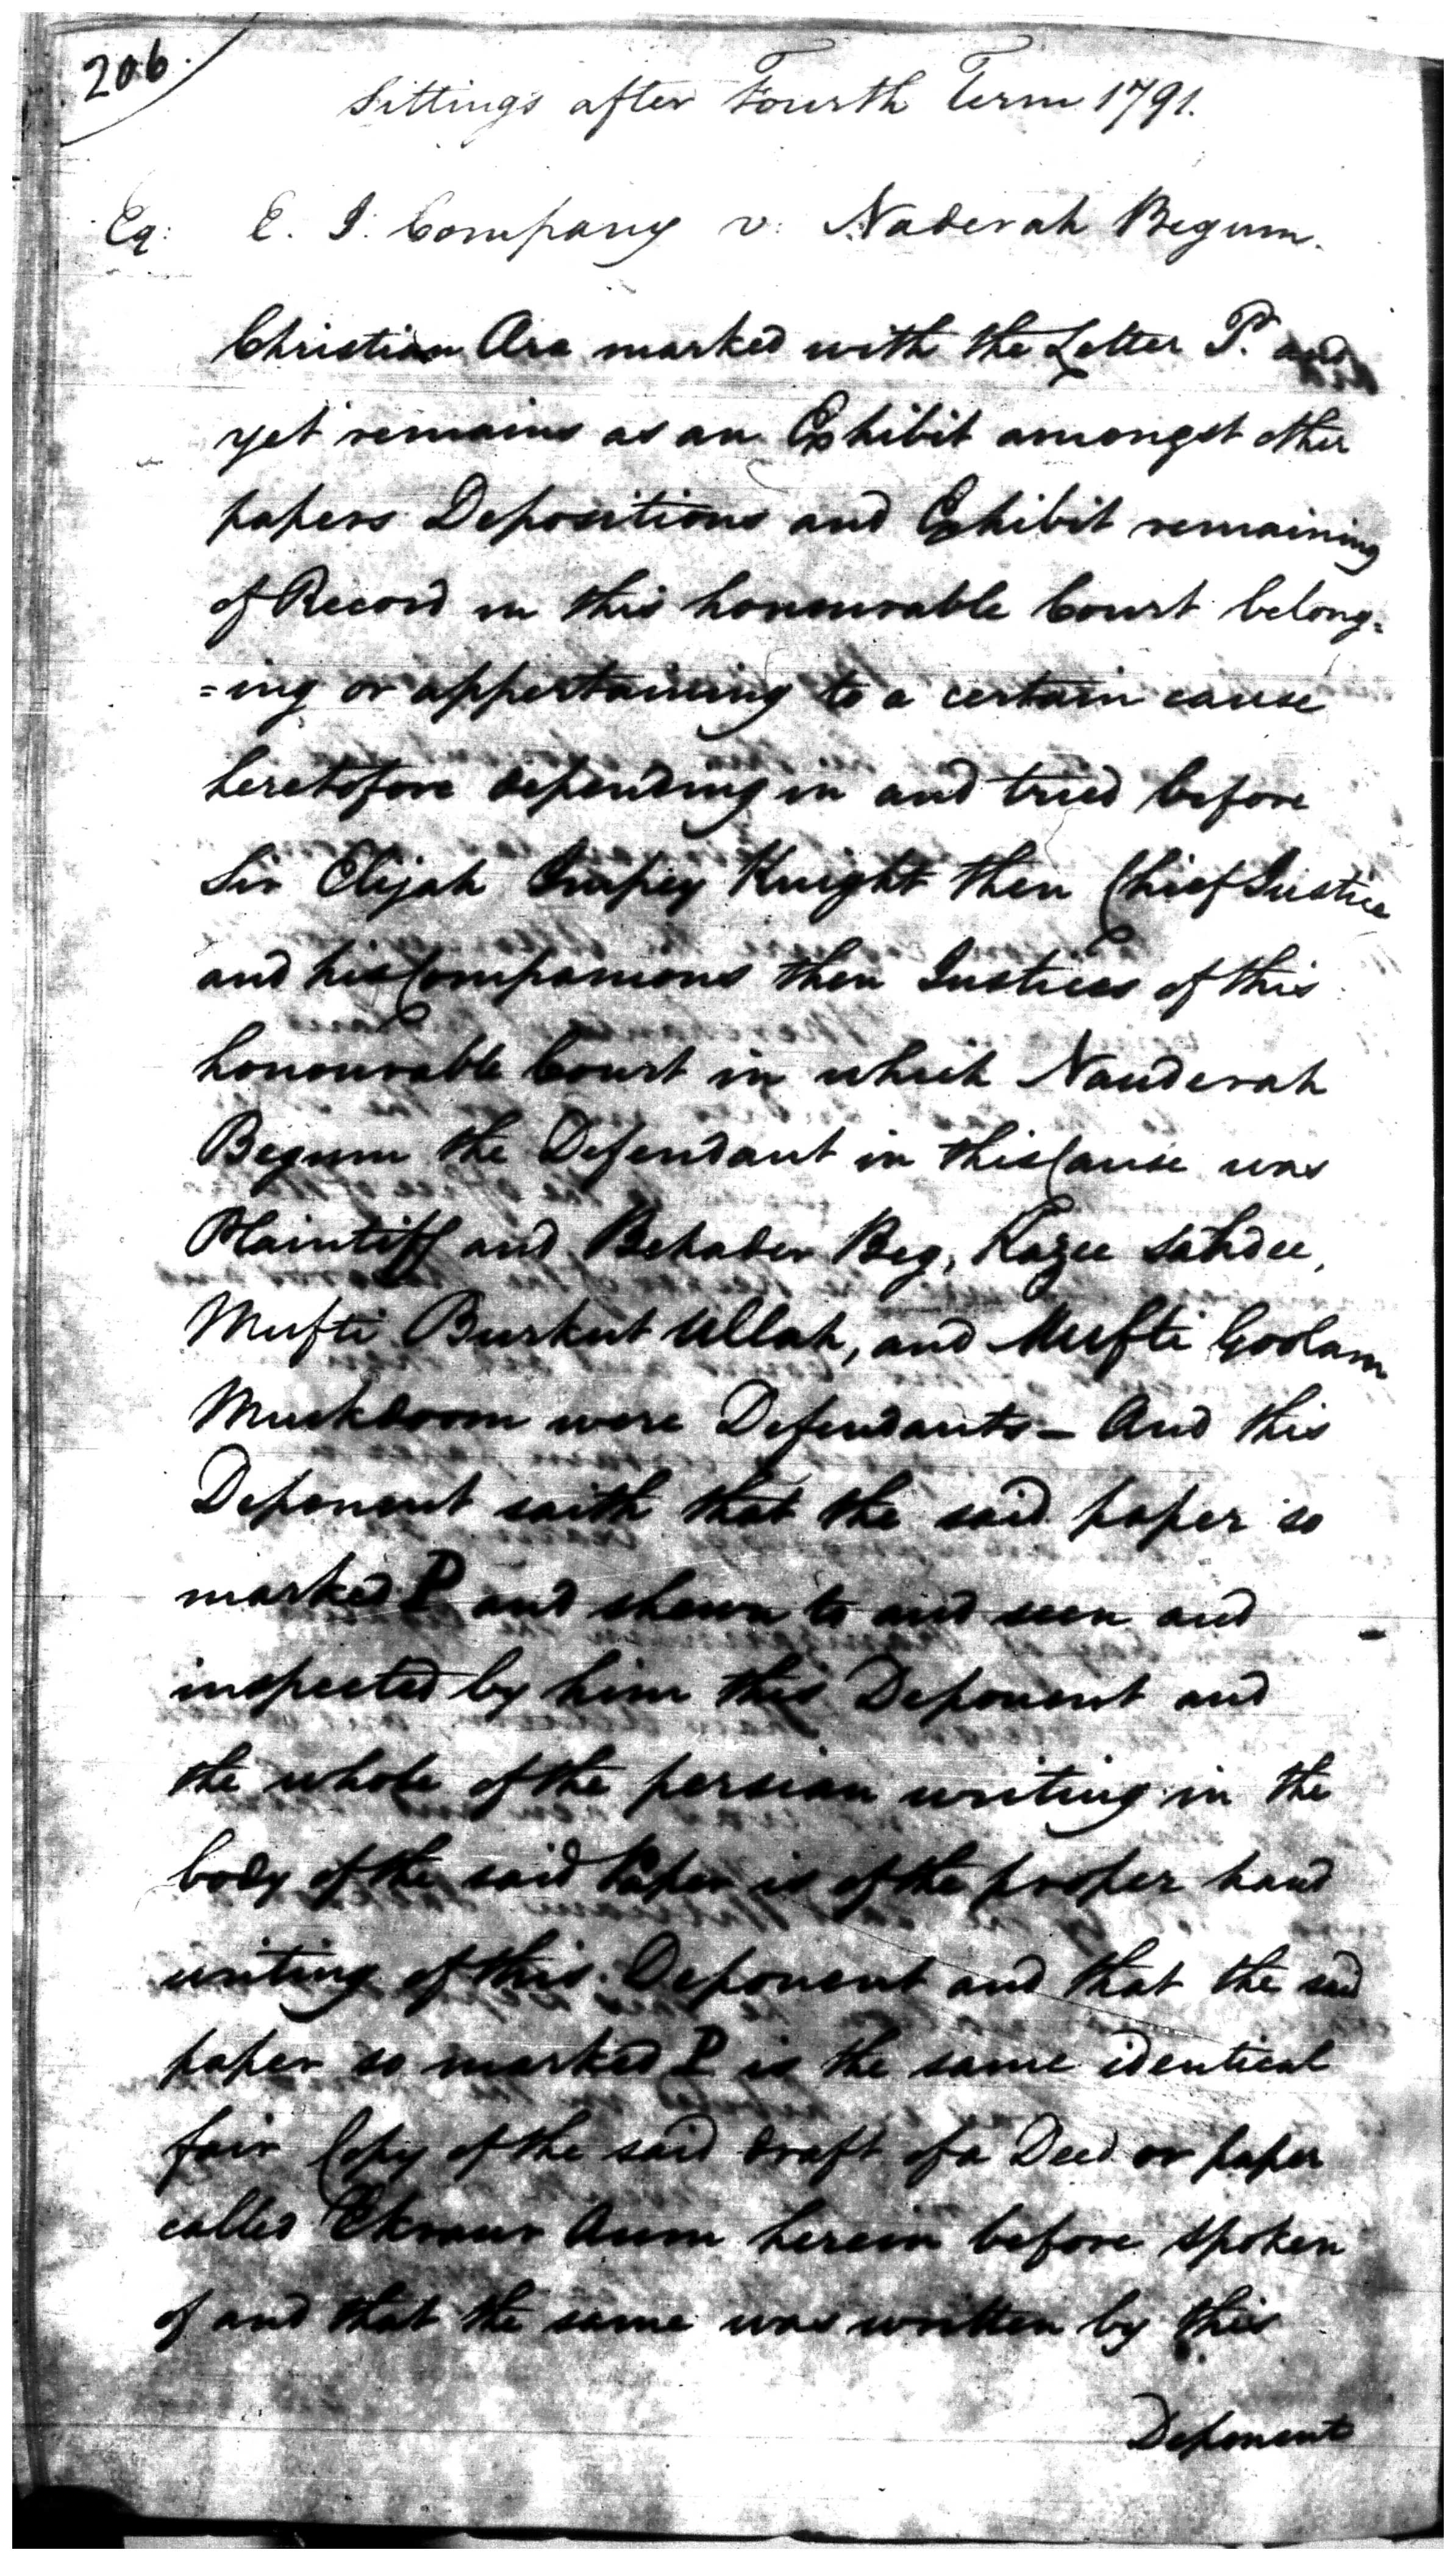 206.
Sittings after Fourth Term 1791.
Eq: E. I. Company v. Naderah Begum.
Christian Æra marked with the Letter P. and
yet remains as an Exhibit amongst other
papers Depositions and Exhibit remaining
of Record in this honourable Court belong=
=ing or appertaining to a certain cause
heretofore depending in and tried before
Sir Elijah Impey Knight then Chief Justice
and his Companions then Justices of this
honourable Court in which Nauderah
Begum the Defendant in this Cause was
Plaintiff and Behader Beg, Kazee Sahdee,
Mufti Burkut Ullah, and Mufti Goolam
Muckdoom were Defendants – And this
Deponent saith that the said paper so
marked P and shewn to and seen and
inspected by him this Deponent and
the whole of the persian writing in the
body of the said Paper is of the proper hand
writing of this Deponent and that the said
paper so marked P is the same identical
fair Copy of the said draft of a Deed or paper
called Ekraur Aum herein before spoken
of and that the same was written by this
Deponent